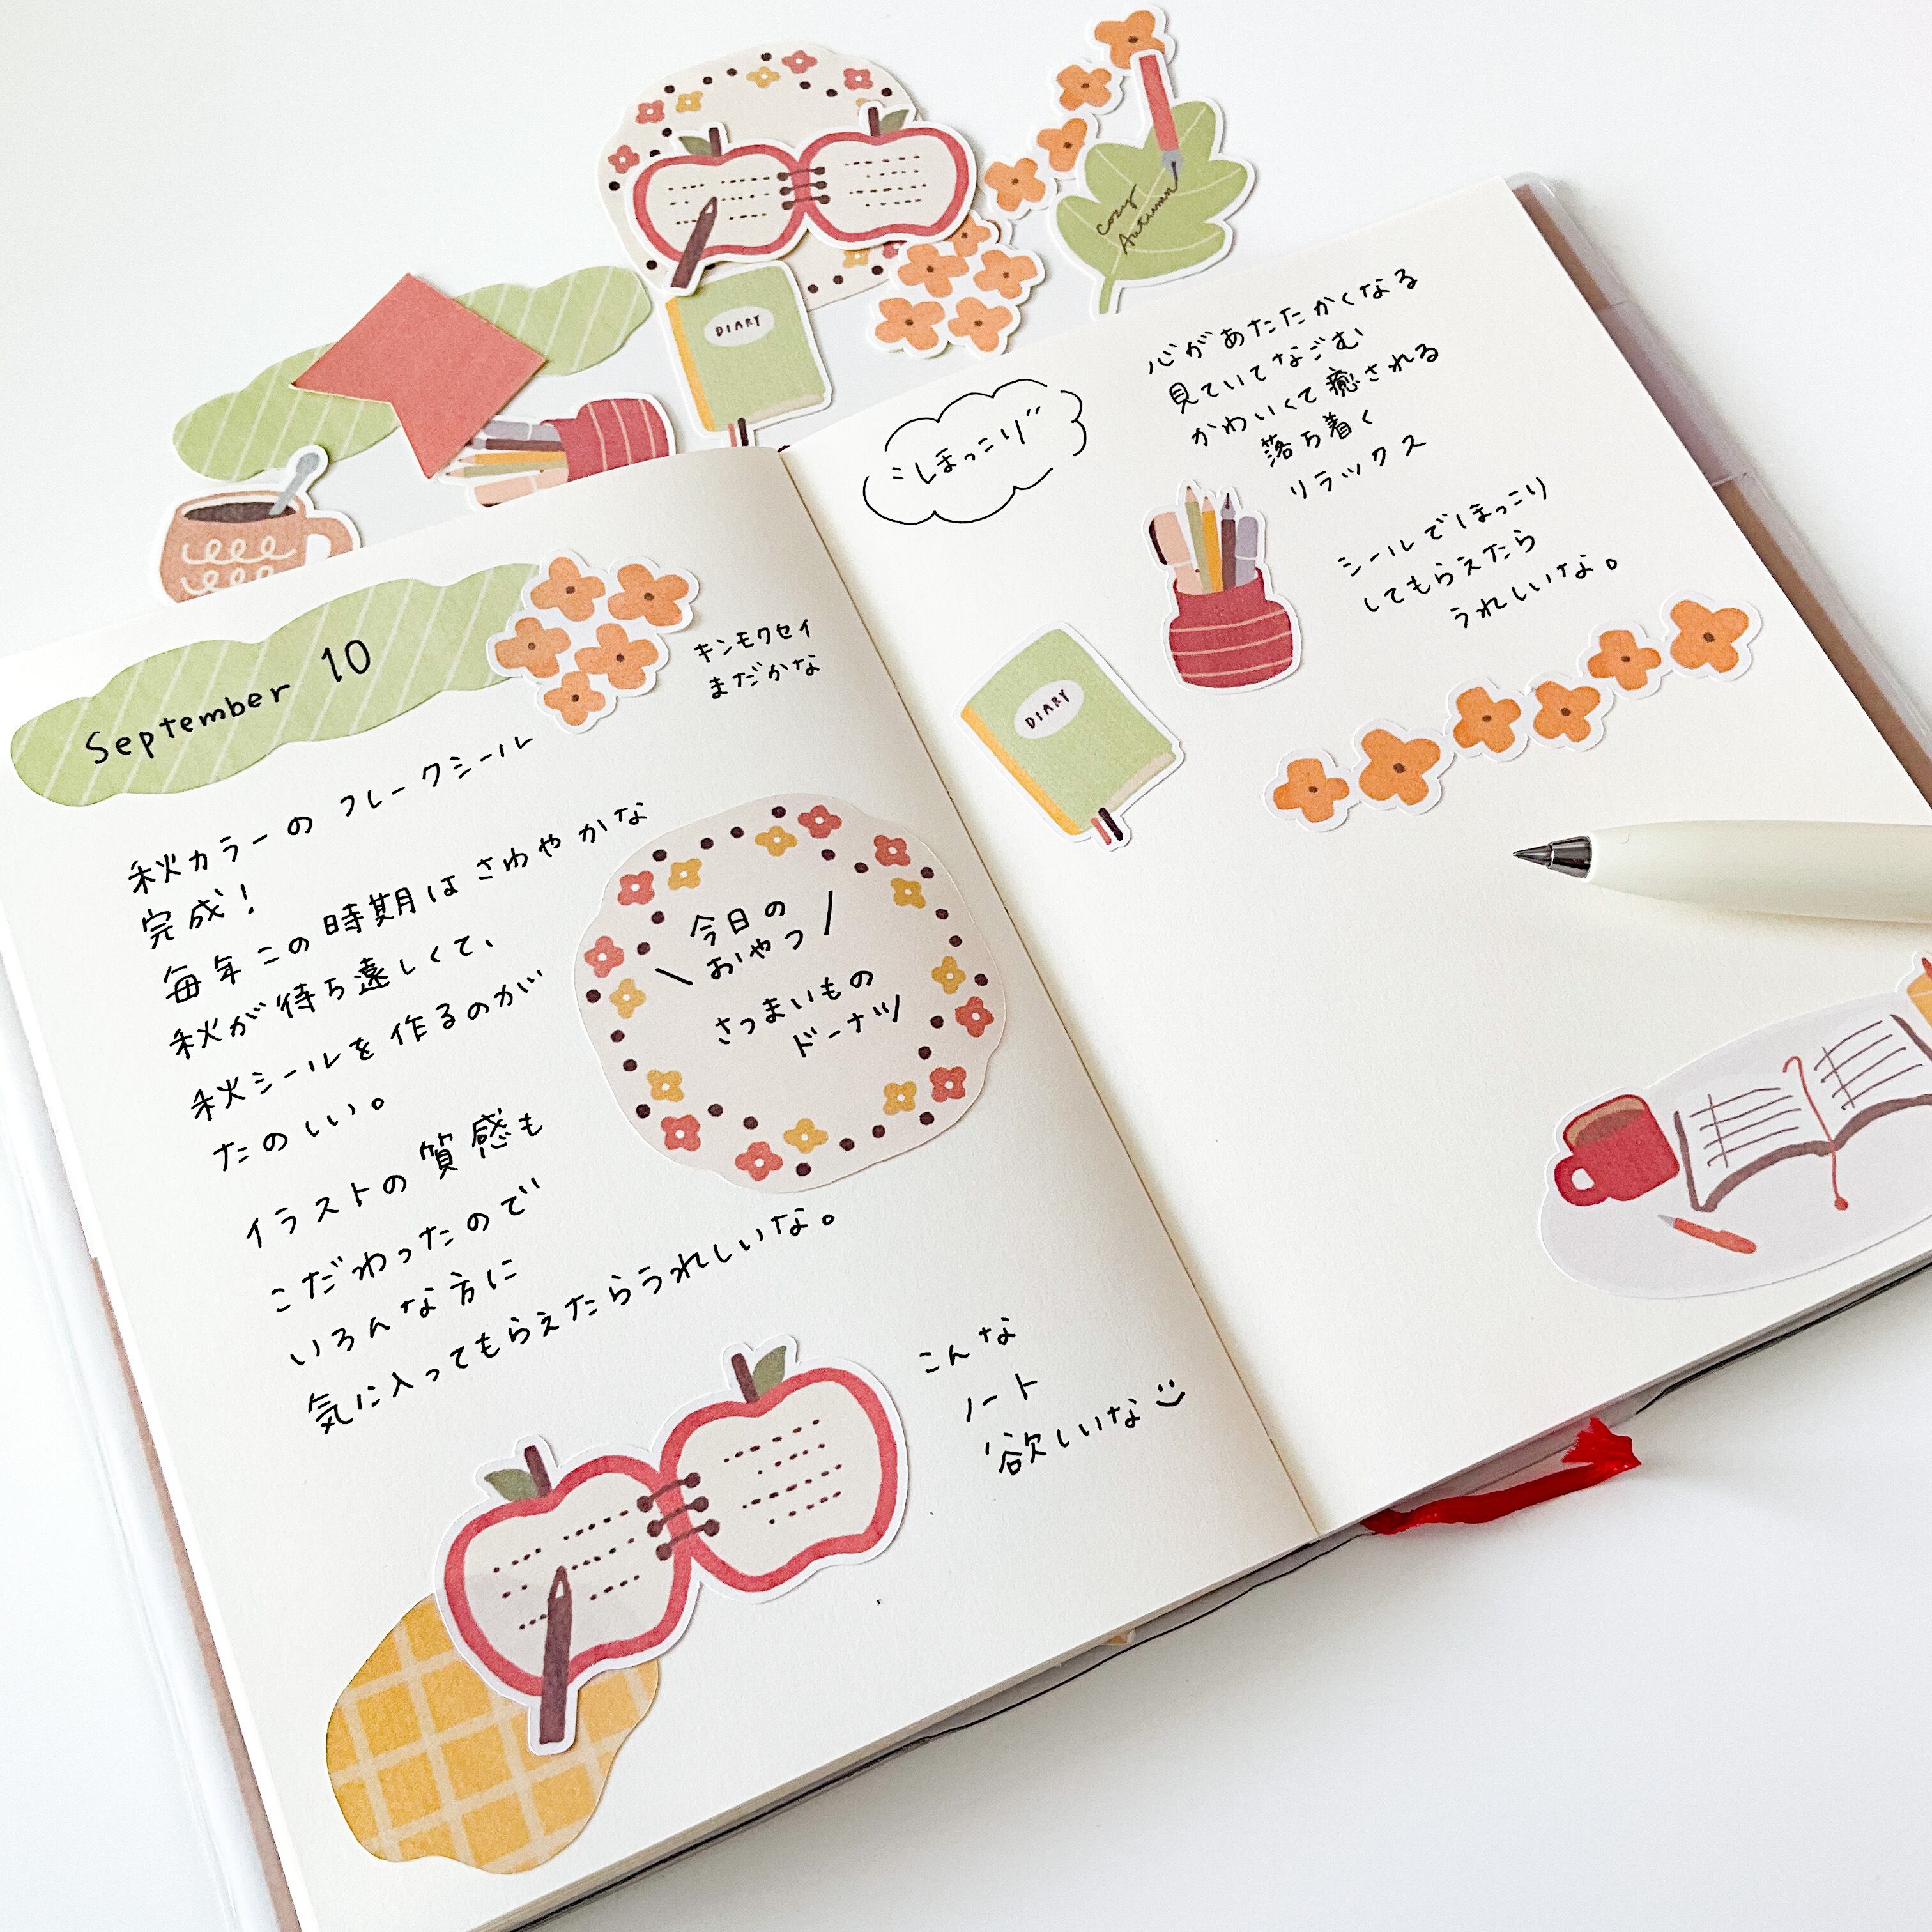 cozy
Autumn
DIARY
September 10
キンモクセイ
まだかな
秋カラーの フレークシール
完成！
毎年この時期は さわやかな
秋が待ち遠しくて、
秋シールを作るのが
たのしい。
イラストの質感も
こだわったので
いろんな方に
気に入ってもらえたらうれしいな。
今日の
おやつ
さつまいもの
ドーナツ
こんな
ノート
欲しいな
ほっこり
心があたたかくなる
見ていてなごむ
かわいくて癒される
落ち着く
リラックス
シールでほっこり
してもらえたら
うれしいな。
DIARY